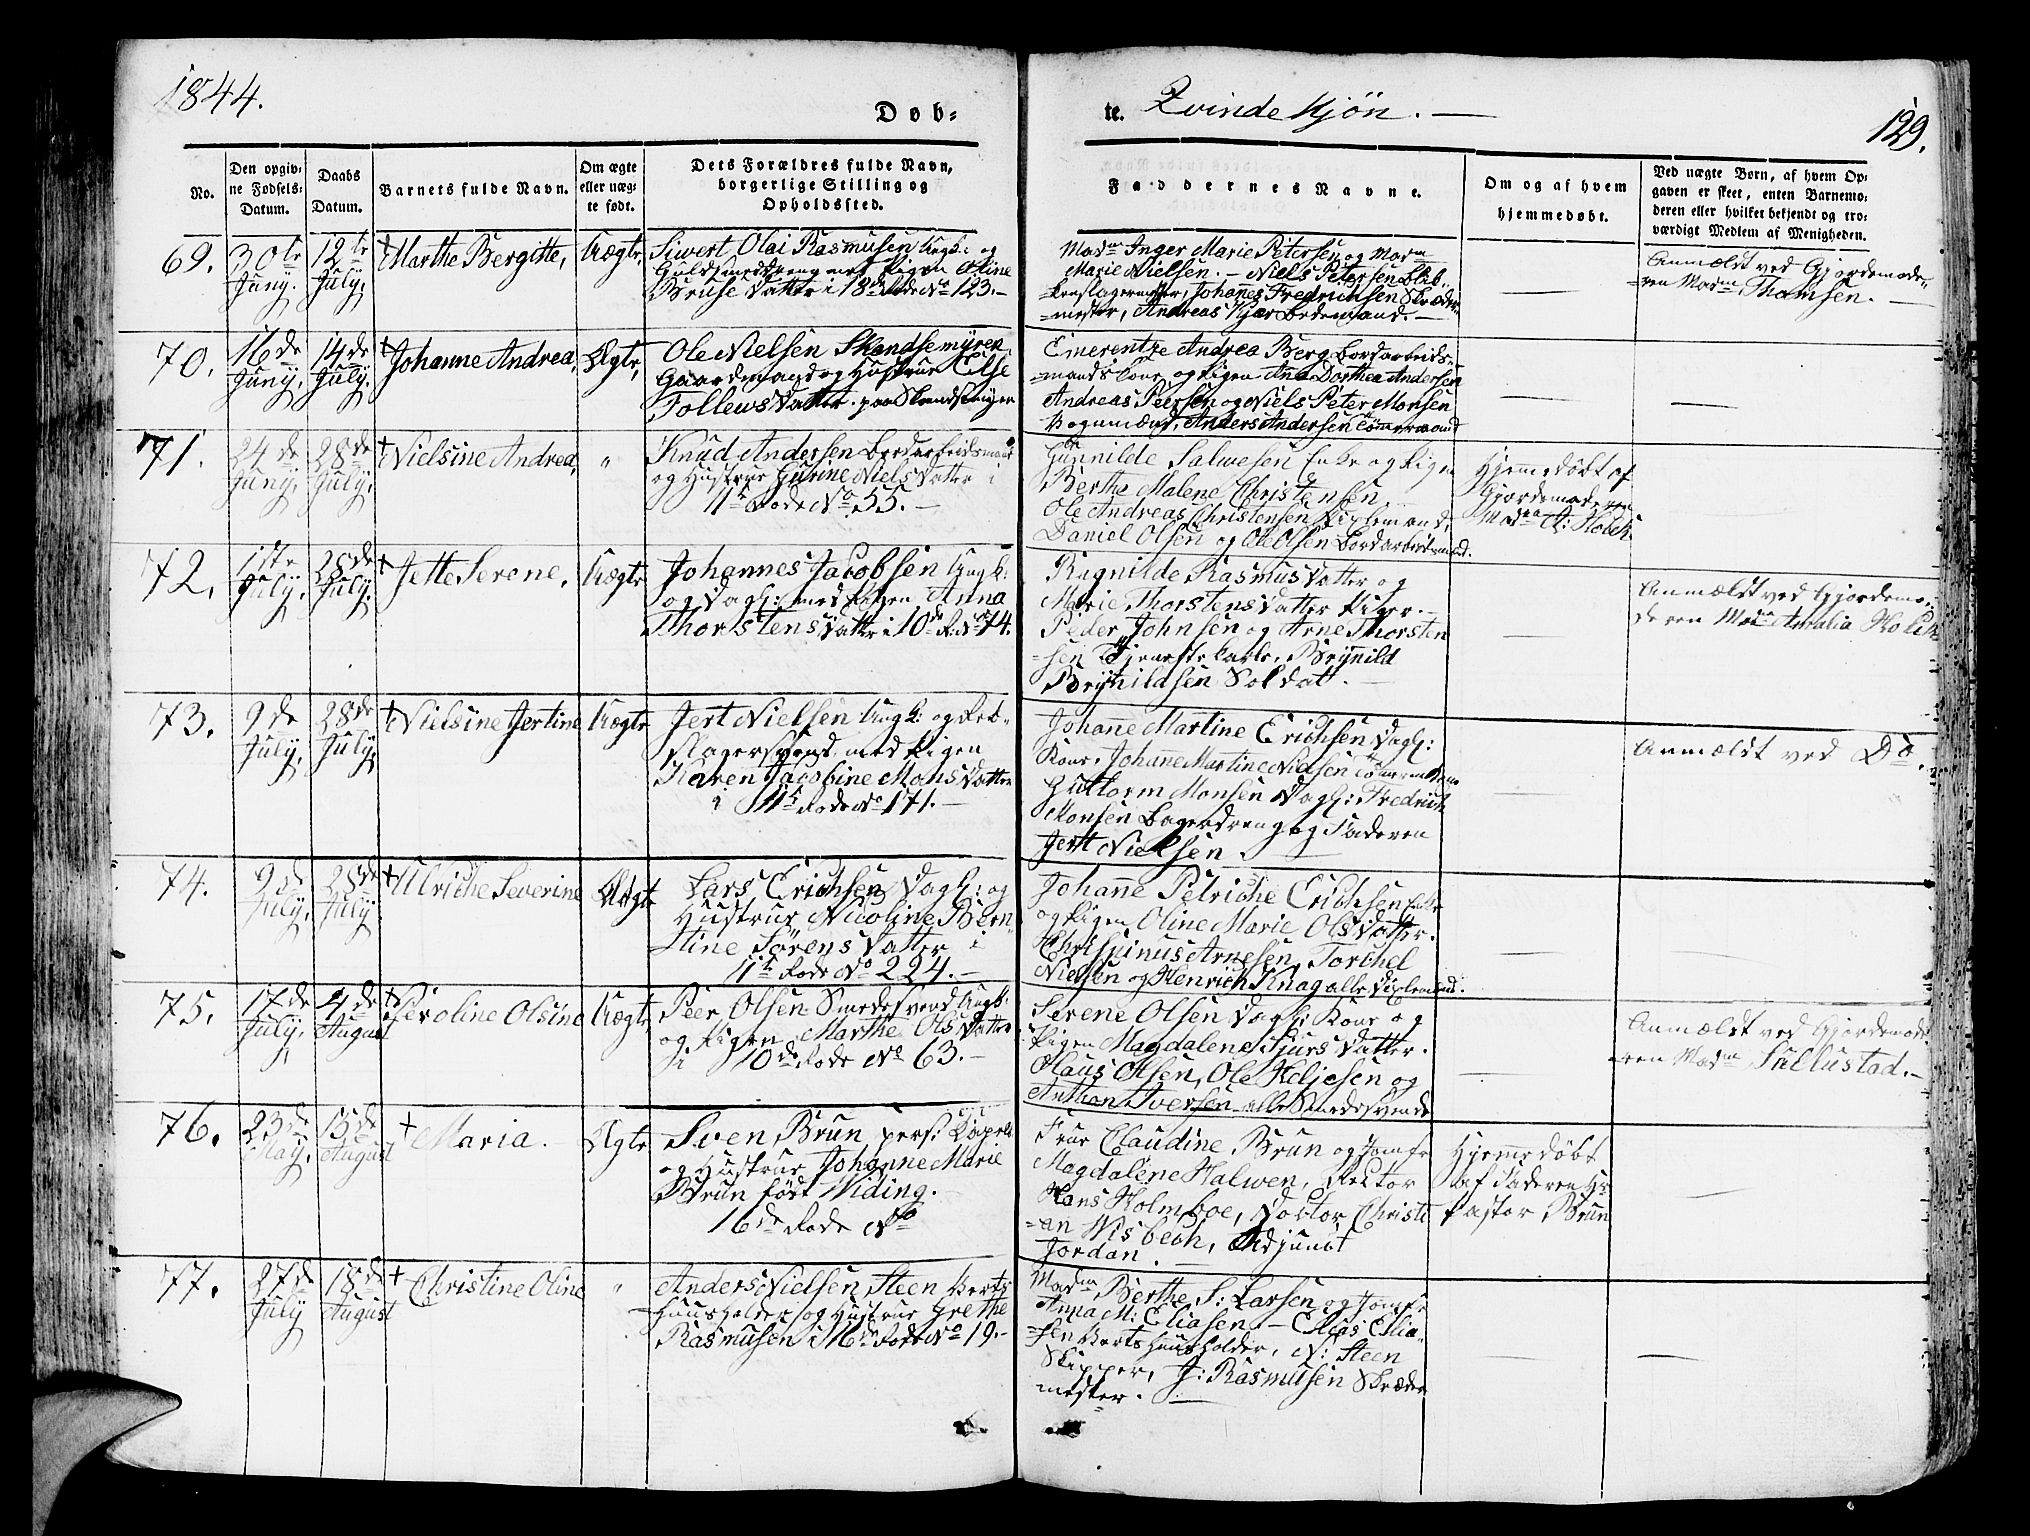 1844.
Døb-
te. Qvindekjøn. —
129.
No.
Den opgiv-
ne Fødsels-
Datum.
Daabs
Datum.
Barnets fulde Navn.
Om ægte
eller uæg-
te født.
Dets Forældres fulde Navn,
borgerlige Stilling og
Opholdssted.
Faddernes Navne.
Om og af hvem
hjemmedøbt.
Ved uægte Børn, af hvem Op-
gaven er skeet, enten Barnemo-
deren eller hvilket bekjendt og tro-
værdigt Medlem af Menigheden.
69.
30te
Juny.
12te
July,
+ Marthe Bergitte,
Uægte,
Siwert Olai Rasmusen Ungk: og
Guldsmeddreng med Pigen Oline
Bruse Datter i 18de Rode No 123.—
Madm Inger Marie Petersen og Madm
Marie Nielsen. — Niels Petersen Blik-
kenslagermester, Johanes Fredriksen Skræder-
=mester, Andreas Kjær Bedemand. —
—
Anmeldt ved Gjordemode-
=ren Madm Thomsen. —
70.
16de
Juny,
14de
July.
+ Johanne Andrea,
Ægte,
Ole Nielsen Skandsemyren
Gaardmand og Hustrue Else
Tollews Datter. paa Skandsemyren
Emerentze Andrea Berg Bordarbeids-
=mands Kone, og Pigen Ana Dorthea Andersen
Andreas Peersen og Niels Peter Monsen
Anders Andersen Tømmermand
—
—
71.
24de
Juny,
28de
July,
+ Nielsine Andrea,
"
Knud Andersen Bordarbeidsmand
og Hustrue Gurine Niels Datter i
11te Rode No 55. —
Gunnilde Salwesen Enke og Pigen
Berthe Malene Christensen
Ole Andreas Christensen
Daniel Olsen og Ole Olsen Bordarbeidsmænd.
Hjemmedøbt af
Gjordemoderen
Madm A: Holck.
—
72.
1ste
July,
28de
July.
+ Jette Serene,
Uægte
Johannes Jacobsen Ungk:
og Dagl: med Pigen Anna
Thorstens Datter i 10de R. No 74.
Ragnilde Rasmus Datter og
Marie Thorstens Datter Piger. —
Peder Johnsen og Arne Thorsten
=sen Tjenestekarle, Brynild
Brynildsen Soldat. —
—
Anmældt ved Gjordemo-
deren Madm Amalia Holck
73.
9de
July,
28de
July.
+ Nielsine Jertine
Uægte
Jert Nielsen Ungk: og Reb-
slagersvend med Pigen
Karen Jacobine Mons Datter
i 11te Rode No 171. —
Johane Martine Erichsen Dagl:
Kone, Johane Martine Nielsen
Guttorm Monsen Dagl: Fredrich
Monsen Bagerdreng og Faderen
Jertt Nielsen.
—
Anmældt ved Do.
74.
9de
July,
28de
July
+ Ulriche Severine
Ægte
Lars Erichsen Dagl: og
Hustrue Nicoline Bern-
tine Sørens Datter i
11te Rode No 224. —
Johane Petriche Erichsen Enke
og Pigen Oline Marie Ols Datter.
Chrispinus Arnesen, Torchel
Nielsen og Henrich Knag alle
—
—
75.
17de
July,
4de
August
+ Seroline Olsine
Uægte
Peer Olsen Smedesvend Ungk:
og Pigen Marthe Ols Datter
i 10de Rode No 63. —
Serene Olsen Dagl: Kone og
Pigen Magdalene Sjurs Datter.
Claus Olsen, Ole Heljesen og
Anthon Iversen alle Smedesvende
—
Anmældt ved Gjordemode-
=ren Madm Sællustad. —
76.
23de
May,
15de
August
+ Maria. —
Ægte
Sven Brun pers: Capel:
og Hustrue Johanne Marie
Brun født Widing.
16de Rode No
Frue Claudine Brun og Jomfr
Magdalene Halwen, Rector
Hans Holmboe, Doktor Christi
=an Wisbech, Adjunct
Jordan. —
Hjemmedøbt
af Faderen Hr
Pastor Brun
—
77.
27de
July
18de
August
+ Christine Oline
"
Anders Nielsen Steen Værts-
huusholder, og Hustrue Grethe
Rasmusen i 16de Rode No 19.—
Madm Berthe S: Larsen og Jomfr
Anna M: Eliasen. — Elias Elia-
=sen Værtshuusholder, N: Steen
Skipper, J: Rasmusen Skræder-
mester. —
—
—